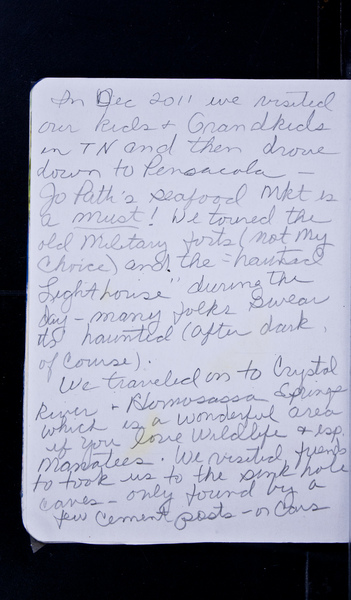 In Dec 2011 we visited
our kids + Grandkids
in TN and then drove
down to Pensacola –
Jo Patti's seafood Mkt is
a must! We toured the
old Military forts (not my
choice) and the "haunted
Lighthouse" during the
day – many folks swear
its haunted (after dark,
of course).
We traveled on to Crystal
River + Homosassa Springs
which is a wonderful area
if you love Wildlife + esp.
Manatees. We visited friends
to took us to the sink hole
caves – only found by a
few cement posts – or cars